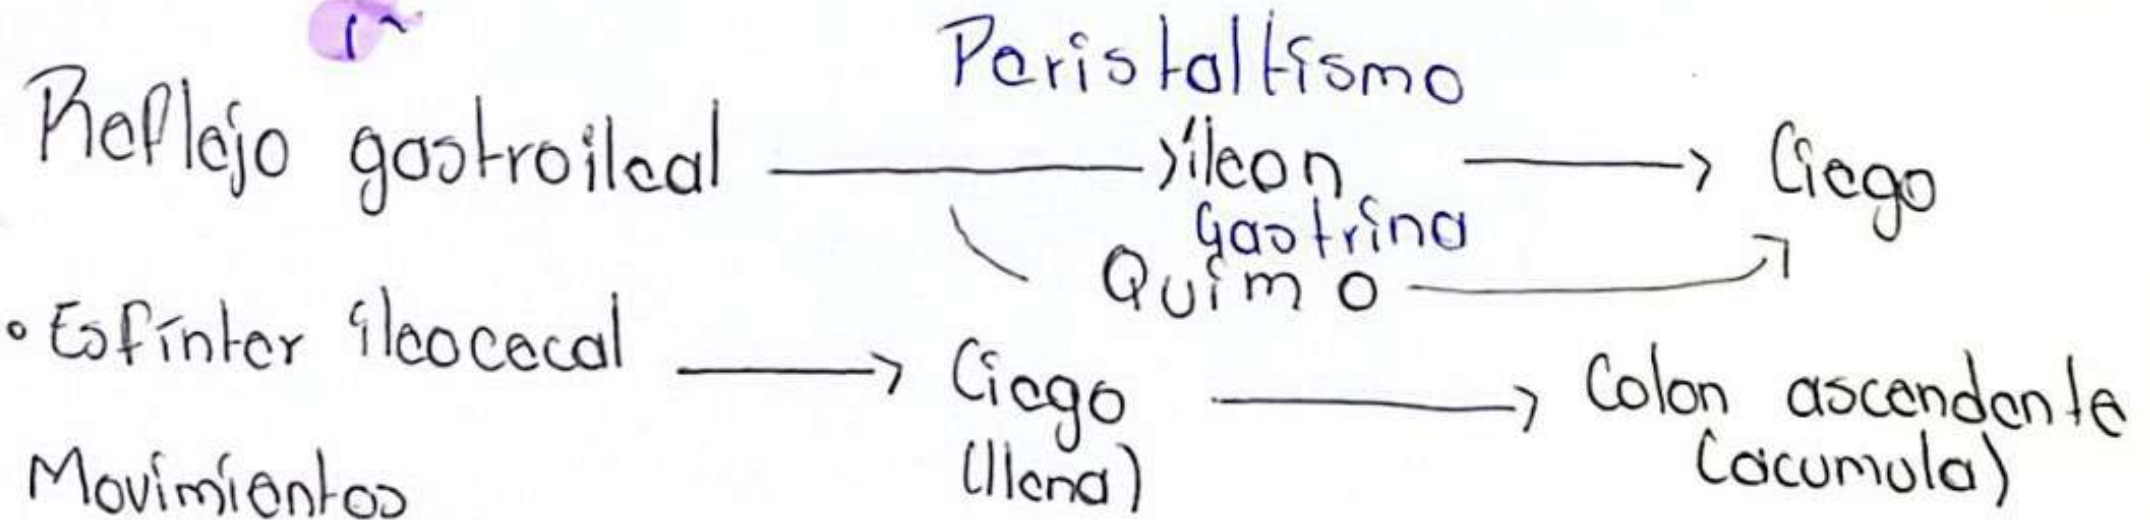 Peristaltismo
Reflejo gastroileal → íleon → Ciego
Gastrina
Quimo
• Esfínter ileocecal → Ciego → Colon ascendente
(llena) (acumula)
Movimientos